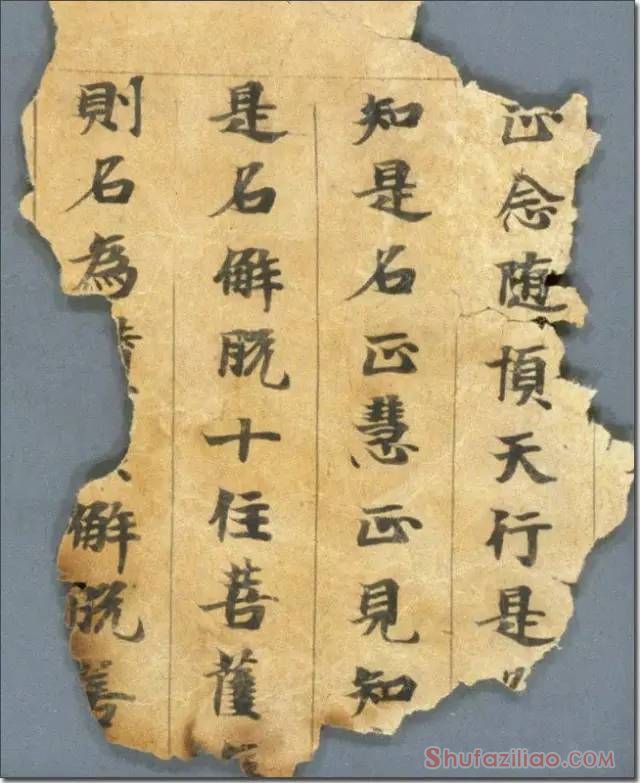 正念随順天行是
知是名正慧正見知
是名解脱十住菩薩
則名為
解脱善
Shufaziliao.com